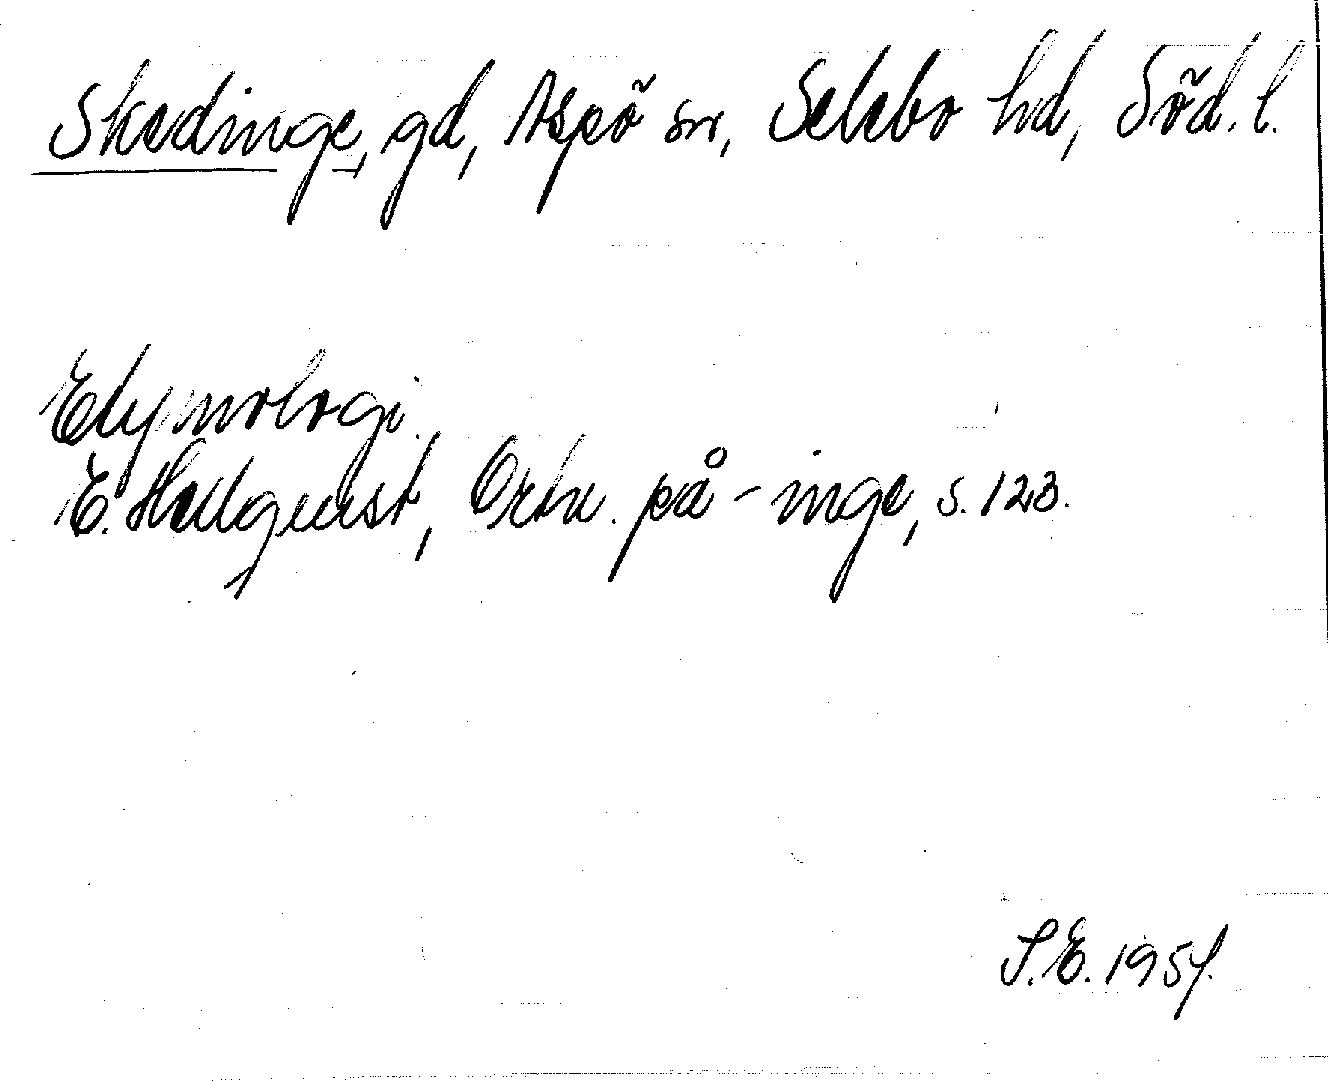 Skedinge, gd, Aspö sn, Selebo hd, Söd. l.
Etymologi.
E. Hellquist, Ortn. på -inge, s. 123.
S.E. 1957.